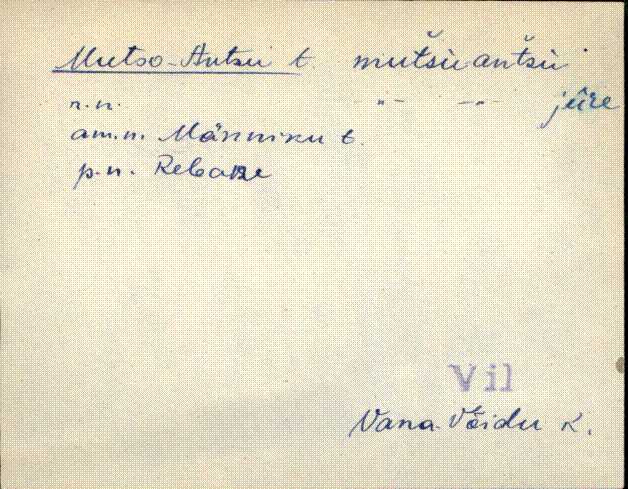 Mutso-Antsu t. mutšuantšu
r.n. –"– –"– jüre
am.n. Männiku t.
p.n. Rebane
Vil
Vana-Võidu k.